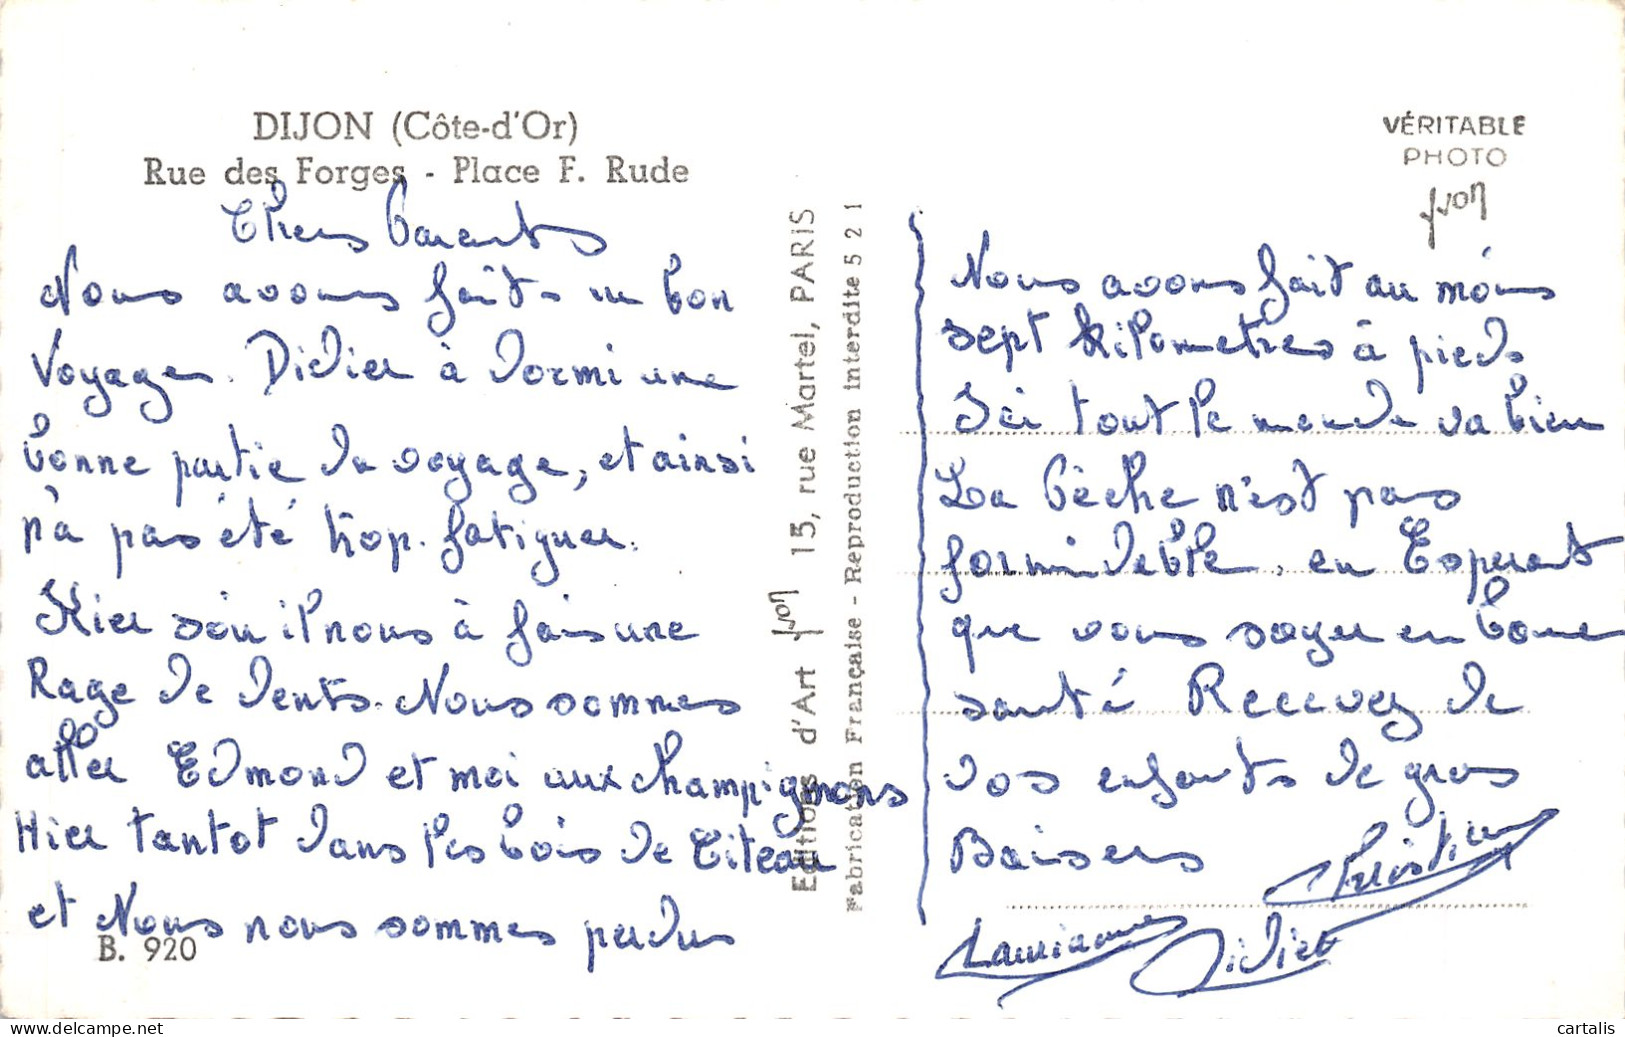 DIJON (Côte-d'Or)
Rue des Forges - Place F. Rude
Chers Parents
Nous avons fait un bon
voyage. Didier à dormi une
bonne partie du voyage, et ainsi
n'a pas été trop fatiguer.
Hier soir il nous à fais une
Rage de dents. Nous sommes
aller Edmond et moi aux champignons
Hier tantot dans les bois de Citeau
et Nous nous sommes perdus
B. 920
Editions d'Art yvon 15, rue Martel, PARIS
Fabrication Française - Reproduction interdite 5 2 1
VÉRITABLE
PHOTO
yvon
Nous avons fait au moins
sept kilometres à pieds
Ici tout le monde va bien
La pêche n'est pas
formideble. en Esperant
que vous soyer en bonne
santé Recevez de
vos enfants de gros
Baisers Christian
Didier
cartalis